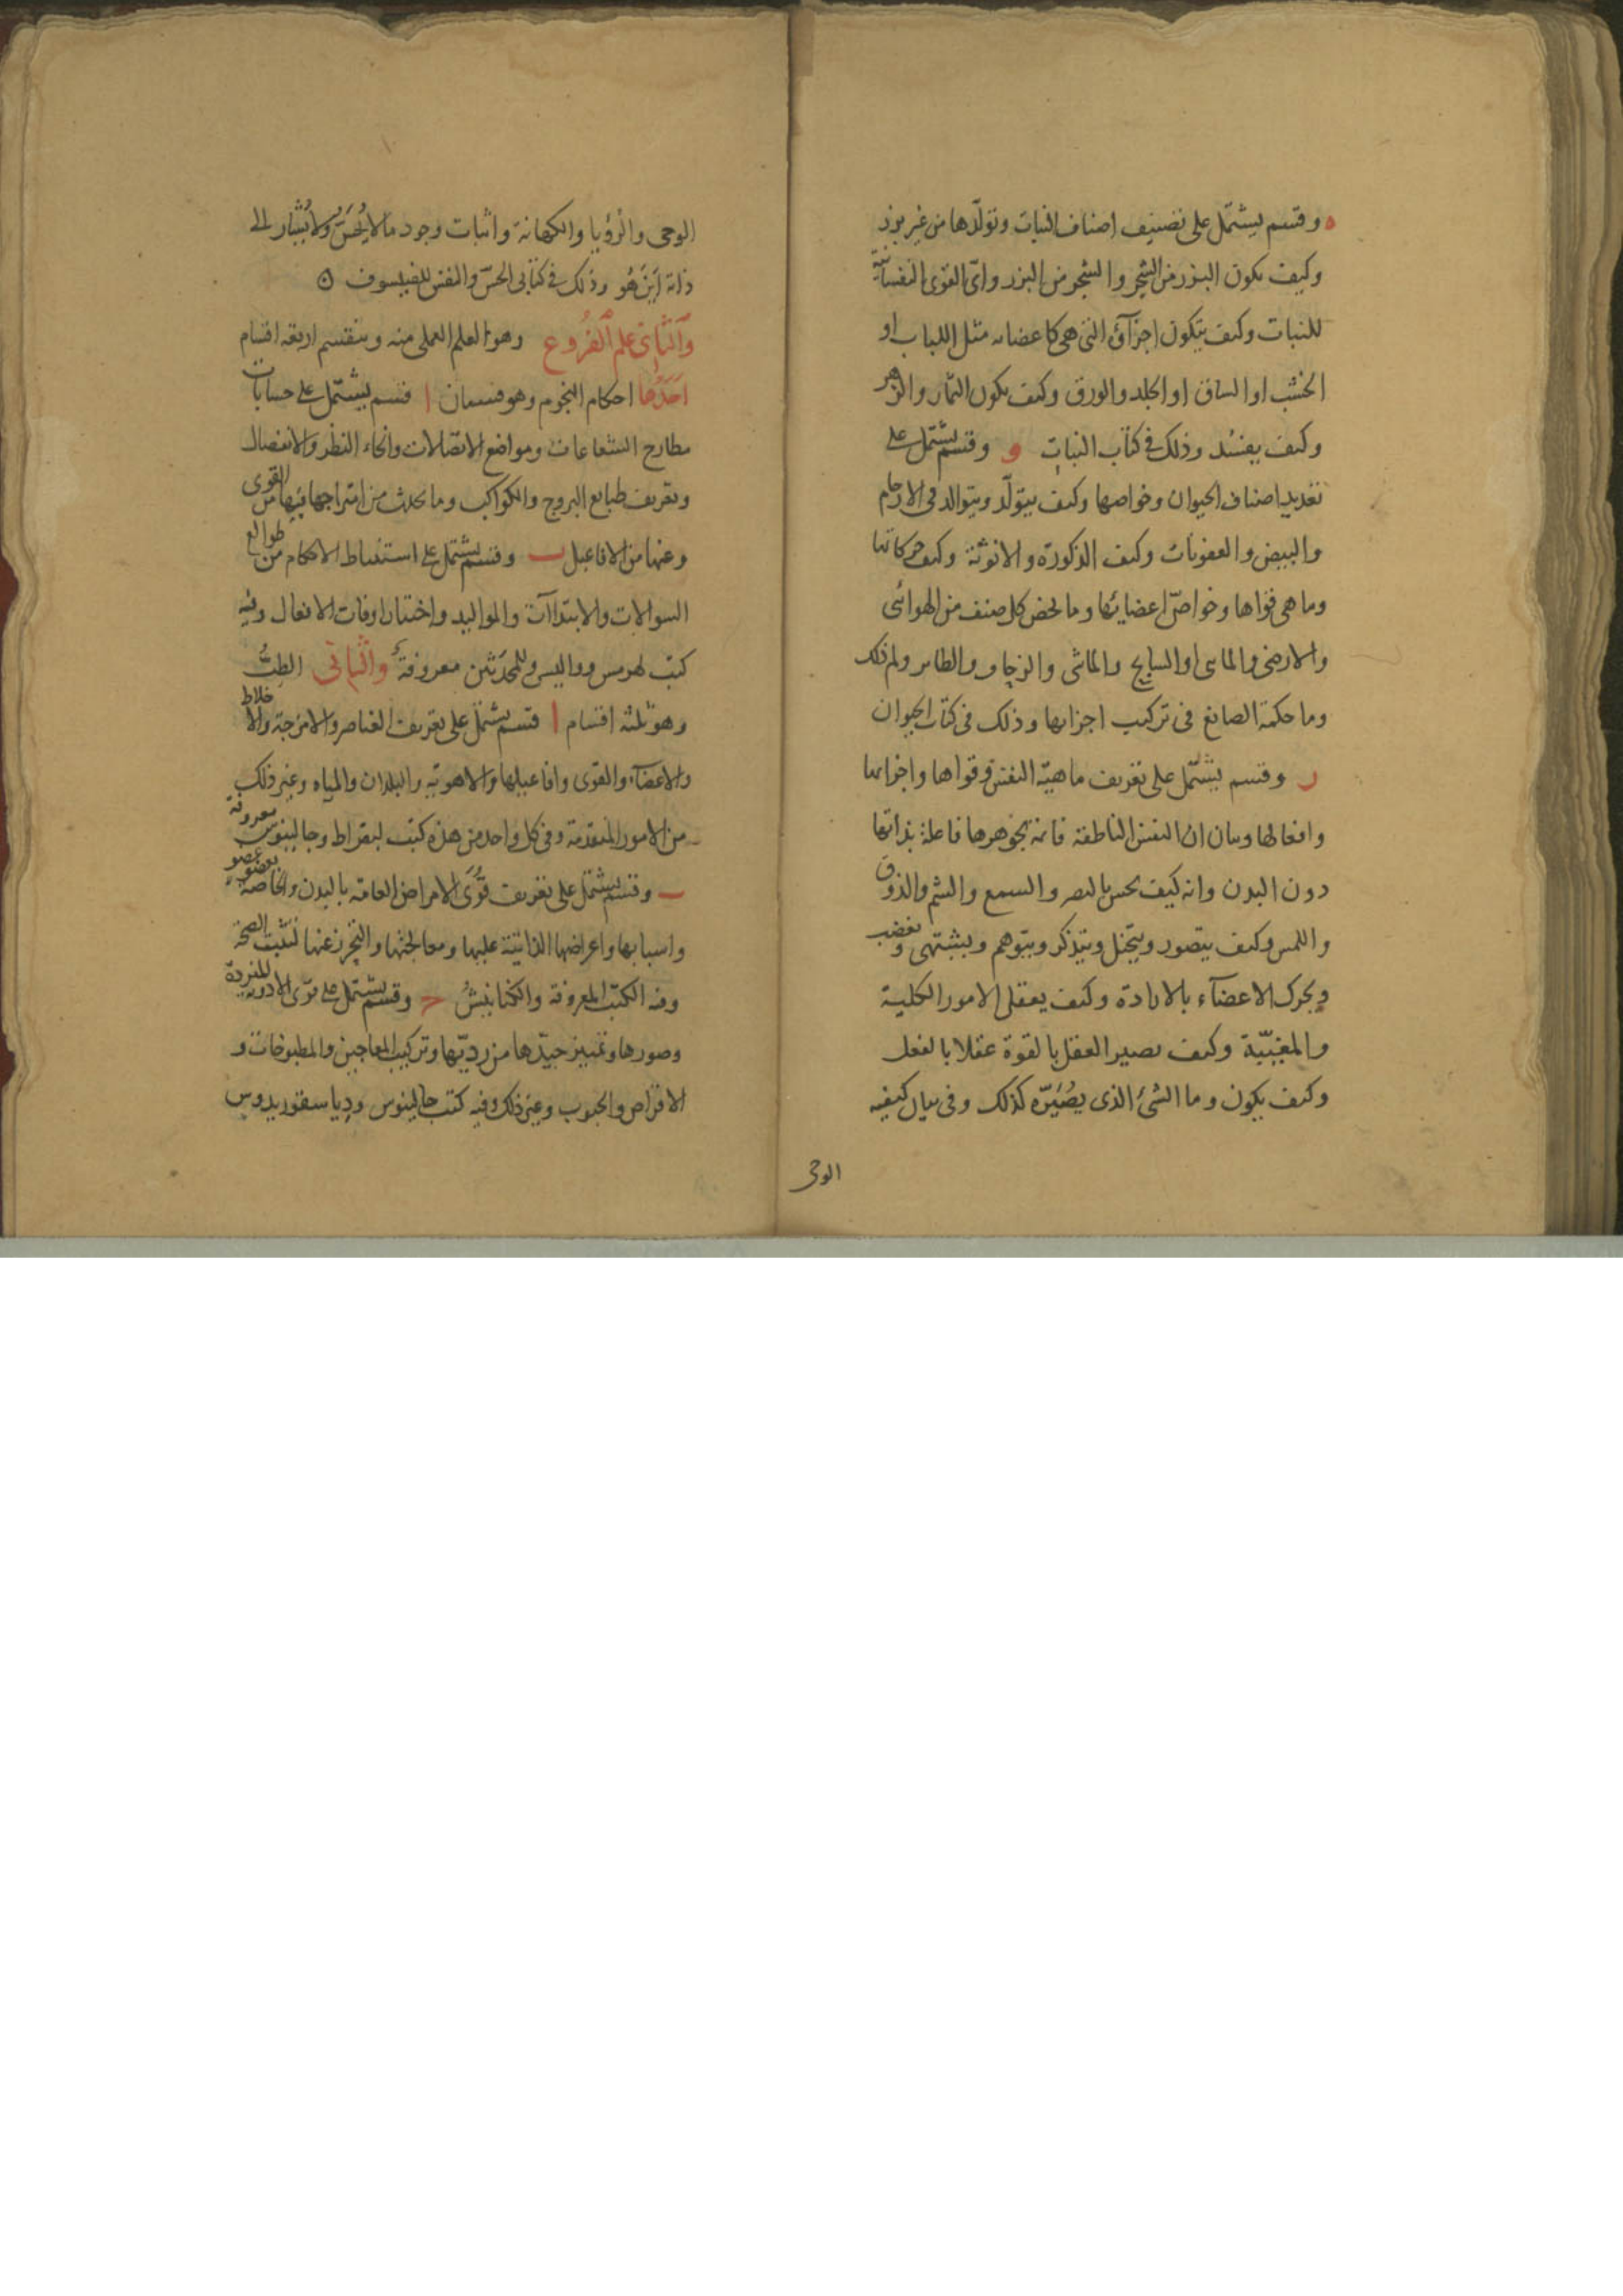 ه وقسم يشتمل على تصنيف اصناف النبات وتولّدها من غير بزر
وكيف يكون البزر من الشجر والشجر من البزر واىّ القوى النفسانية
للنبات وكيف يتكون اجزآؤه التى هى كاعضائه مثل اللباب او
الخشب او الساق او الجلد والورق وكيف يكون الثمار والزهر
وكيف يفسُد وذلك فى كتاب النبات و وقسم يشتمل على
تعديد اصناف الحيوان وخواصها وكيف يتولّد ويتوالد فى الارحام
والبيض والعفونات وكيف الذكورة والانوثة وكيف حركاتها
وما هى قواها وخواصّ اعضائها وما يخص كل صنف من الهوائى
والارضى والمائى او السابح والماشى والزحاف والطائر ولم ذلك
وما حكمة الصانع فى تركيب اجزائها وذلك فى كتاب الحيوان
ز وقسم يشتمل على تعريف ماهيّة النفس وقواها واجزائها
وافعالها وبيان ان النفس الناطقة قائمة بجوهرها فاعلة بذاتها
دون البدن وانه كيف يحس بالبصر والسمع والشم والذوق
واللمس وكيف يتصور ويتخيل ويتذكر ويتوهم ويشتهى ويغضب
ويحرك الاعضآء بالارادة وكيف يعقل الامور الكلية
والمغيّبة وكيف يصير العقل بالقوة عقلا بالفعل
وكيف يكون وما الشئ الذى يصُيَّره كذلك وفى بيان كيفيه
الوحى
الوحى والرؤيا والكهانة واثبات وجود ما لا يُحَسّ ولا يُشار الى
ذاته اَينَ هُو وذلك فى كتابى الحسّ والنفس للفيلسوف
وَالثَّانى علم الفُرُوع وهو العلم العملى منه وينقسم اربعة اقسام
اَحَدُها احكام النجوم وهو قسمان ا قسم يشتمل على حسابات
مطارح الشعاعات ومواضع الاتصالات وانحاء النظر والانفصال
وتعريف طبايع البروج والكواكب وما يحدث من امتزاجها فيها من القوى
وعنها من الافاعيل ب وقسم يشتمل على استنباط الاحكام من طوالع
السوالات والابتداآت والمواليد واختيار اوقات الافعال وفيه
كتب لهرمس وواليس وللمحدَثين معروفة والثانى الطبُّ
وهو ثلثة اقسام ا قسم يشتمل على تعريف العناصر والامزجة والاخلاط
والاعضآء والقوى وافاعيلها والاهوية والبلدان والمياه وغير ذلك
من الامور المتقدمة وفى كل واحد من هذه كتب لبقراط وجالينوس معروفة
ب وقسم يشتمل على تعريف قُوَى الامراض العامة بالبدن والخاصة بعضو عضو
واسبابها واعراضها الذاتية عليها ومعالجتها والتحرز عنها لتثبت الصحة
وفيه الكتب المعروفة والكنانيش ج وقسم يشتمل على قوى الادوية المفردة
وصورها وتمييز جيّدها من رديّها وتركيب المعاجين والمطبوخات و
الاقراص والحبوب وغير ذلك وفيه كتب جالينوس ودياسقوريدوس